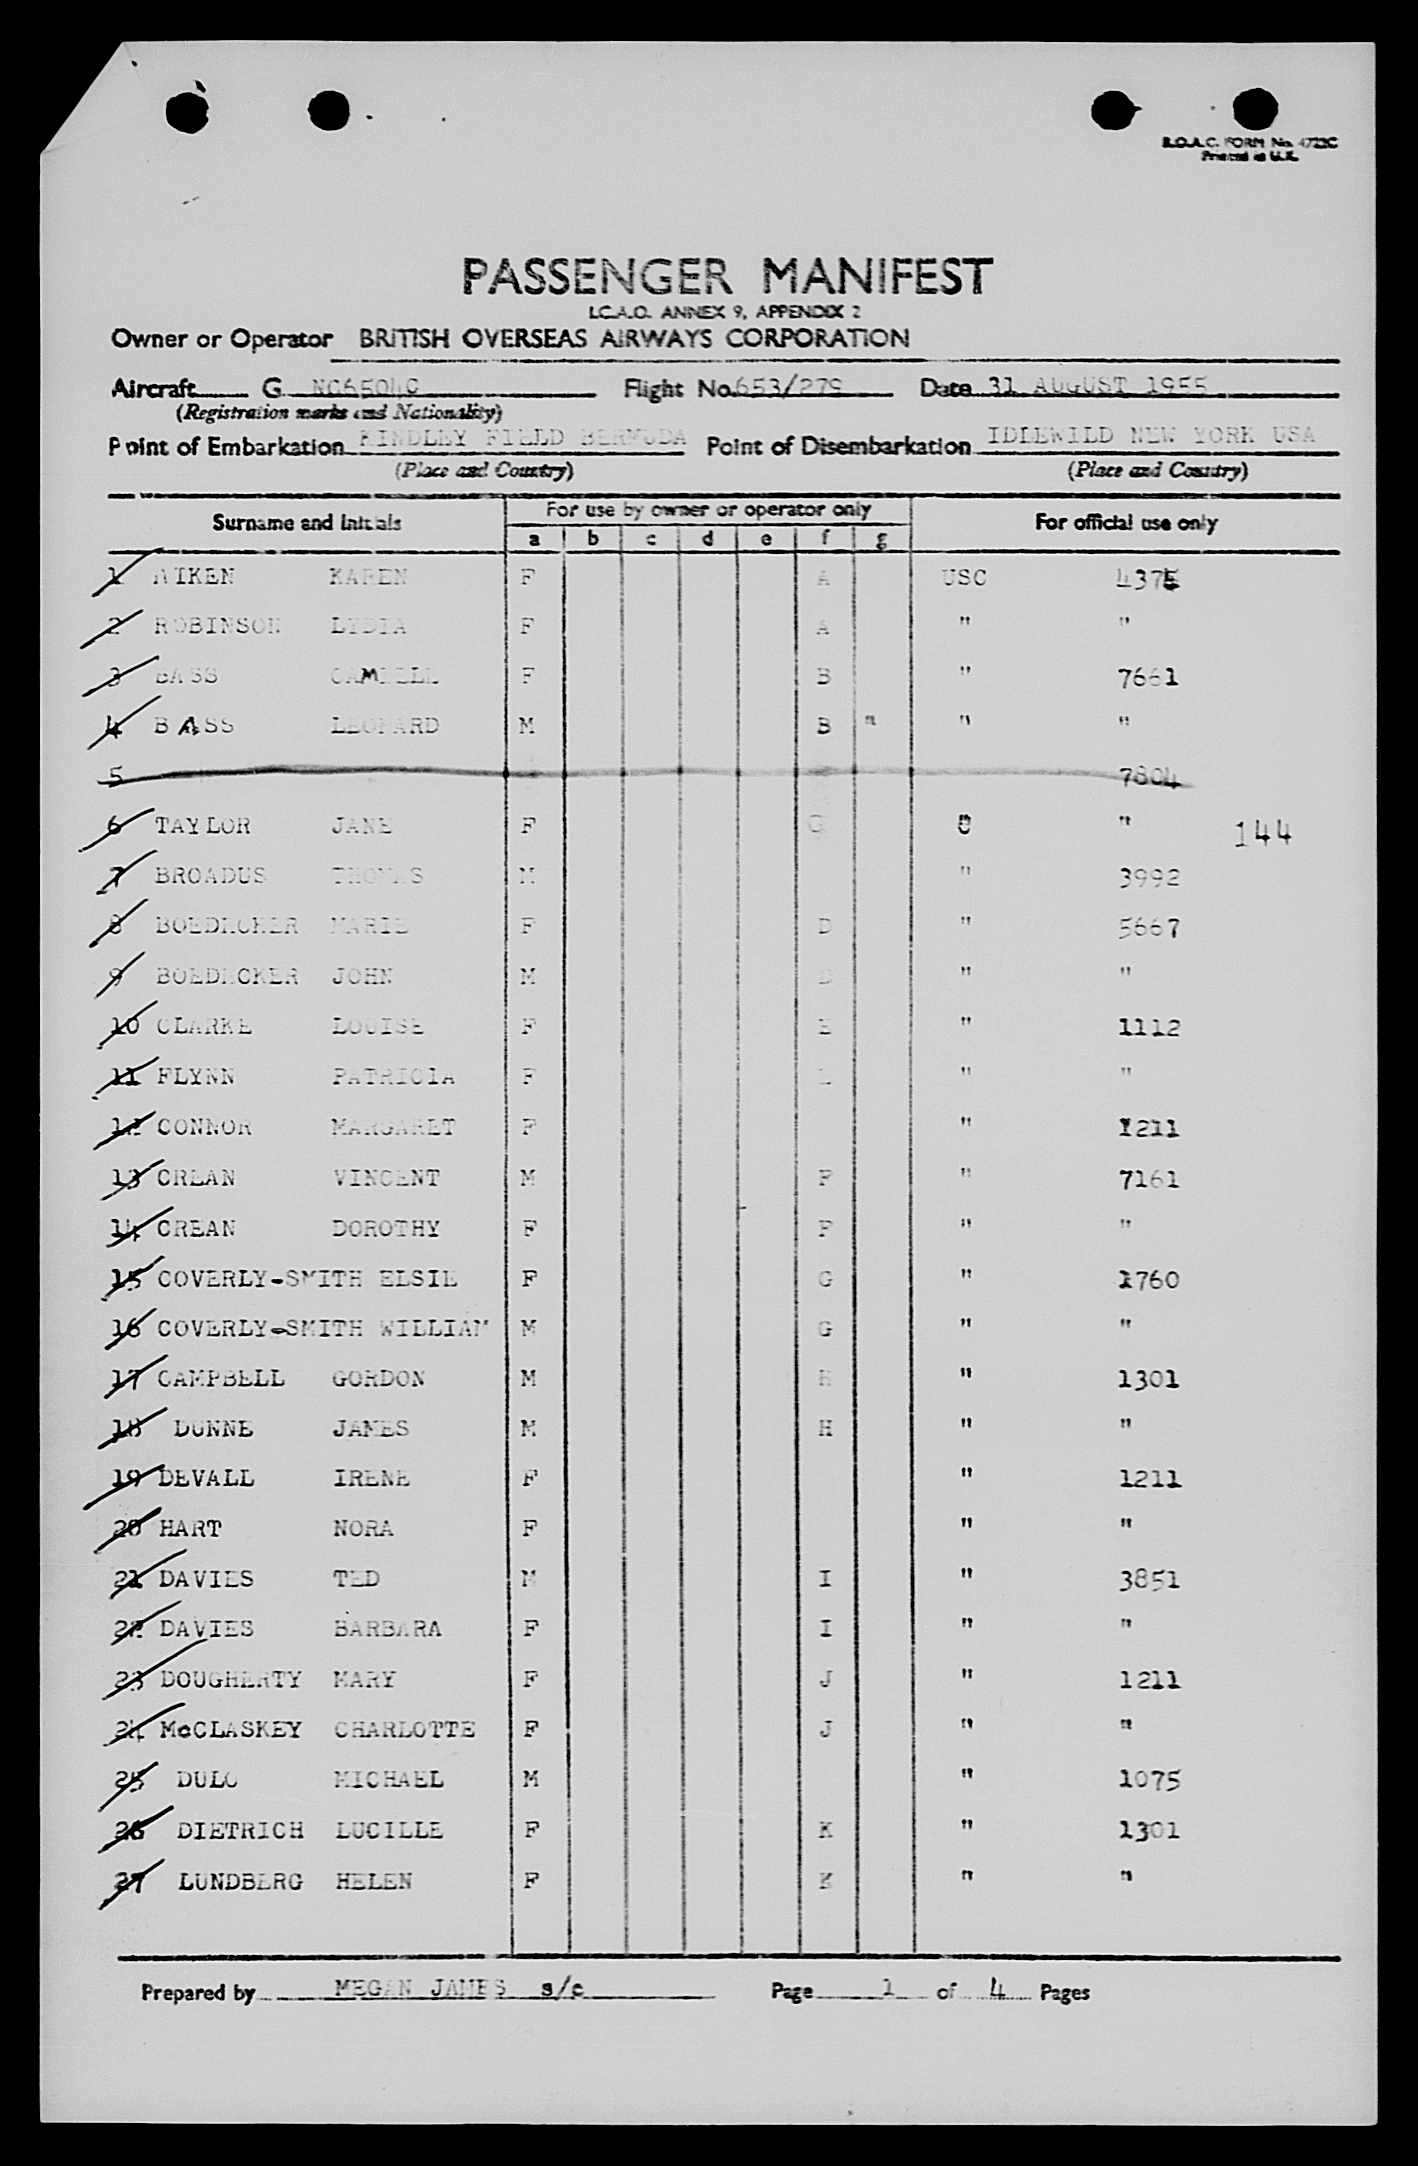 B.O.A.C. FORM No. 4722C
Printed in U.K.
PASSENGER MANIFEST
I.C.A.O. ANNEX 9, APPENDIX 2
Owner or Operator BRITISH OVERSEAS AIRWAYS CORPORATION
Aircraft G NC6504C Flight No. 653/279 Date 31 AUGUST 1955
(Registration marks and Nationality)
Point of Embarkation KINDLEY FIELD BERMUDA Point of Disembarkation IDLEWILD NEW YORK USA
(Place and Country) (Place and Country)
Surname and Initials For use by owner or operator only For official use only
a b c d e f g
1 KAREN F A USC 4375
2 ROBINSON LYDIA F A " "
3 BASS F B " 7661
4 BASS LEONARD M B " " "
5 7804
6 TAYLOR JANE F " "
144
7 BROADUS THOMAS M " 3992
8 BOEDECKER MARIE F D " 5667
9 BOEDECKER JOHN M D " "
10 CLARKE LOUISE F E " 1112
11 FLYNN PATRICIA F E " "
12 CONNOR MARGARET F " 1211
13 CREAN VINCENT M F " 7161
14 CREAN DOROTHY F F " "
15 COVERLY-SMITH ELSIE F G " 1760
16 COVERLY-SMITH WILLIAM M G " "
17 CAMPBELL GORDON M H " 1301
18 DUNNE JAMES M H " "
19 DEVALL IRENE F " 1211
20 HART NORA F " "
21 DAVIES TED M I " 3851
22 DAVIES BARBARA F I " "
23 DOUGHERTY MARY F J " 1211
24 McCLASKEY CHARLOTTE F J " "
25 MICHAEL M " 1075
26 DIETRICH LUCILLE F K " 1301
27 LUNDBERG HELEN F K " "
Prepared by MEGAN JAMES s/c Page 1 of 4 Pages